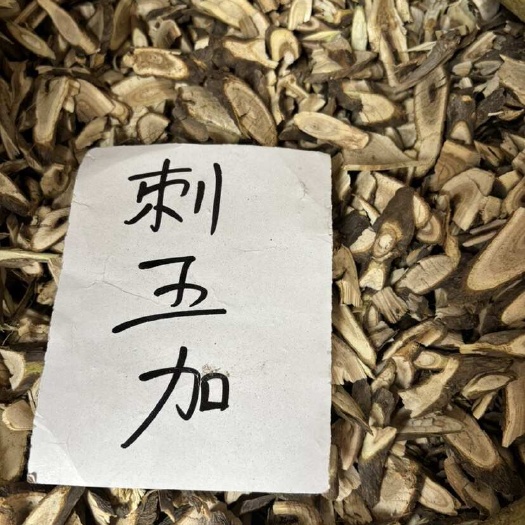 刺
五
加